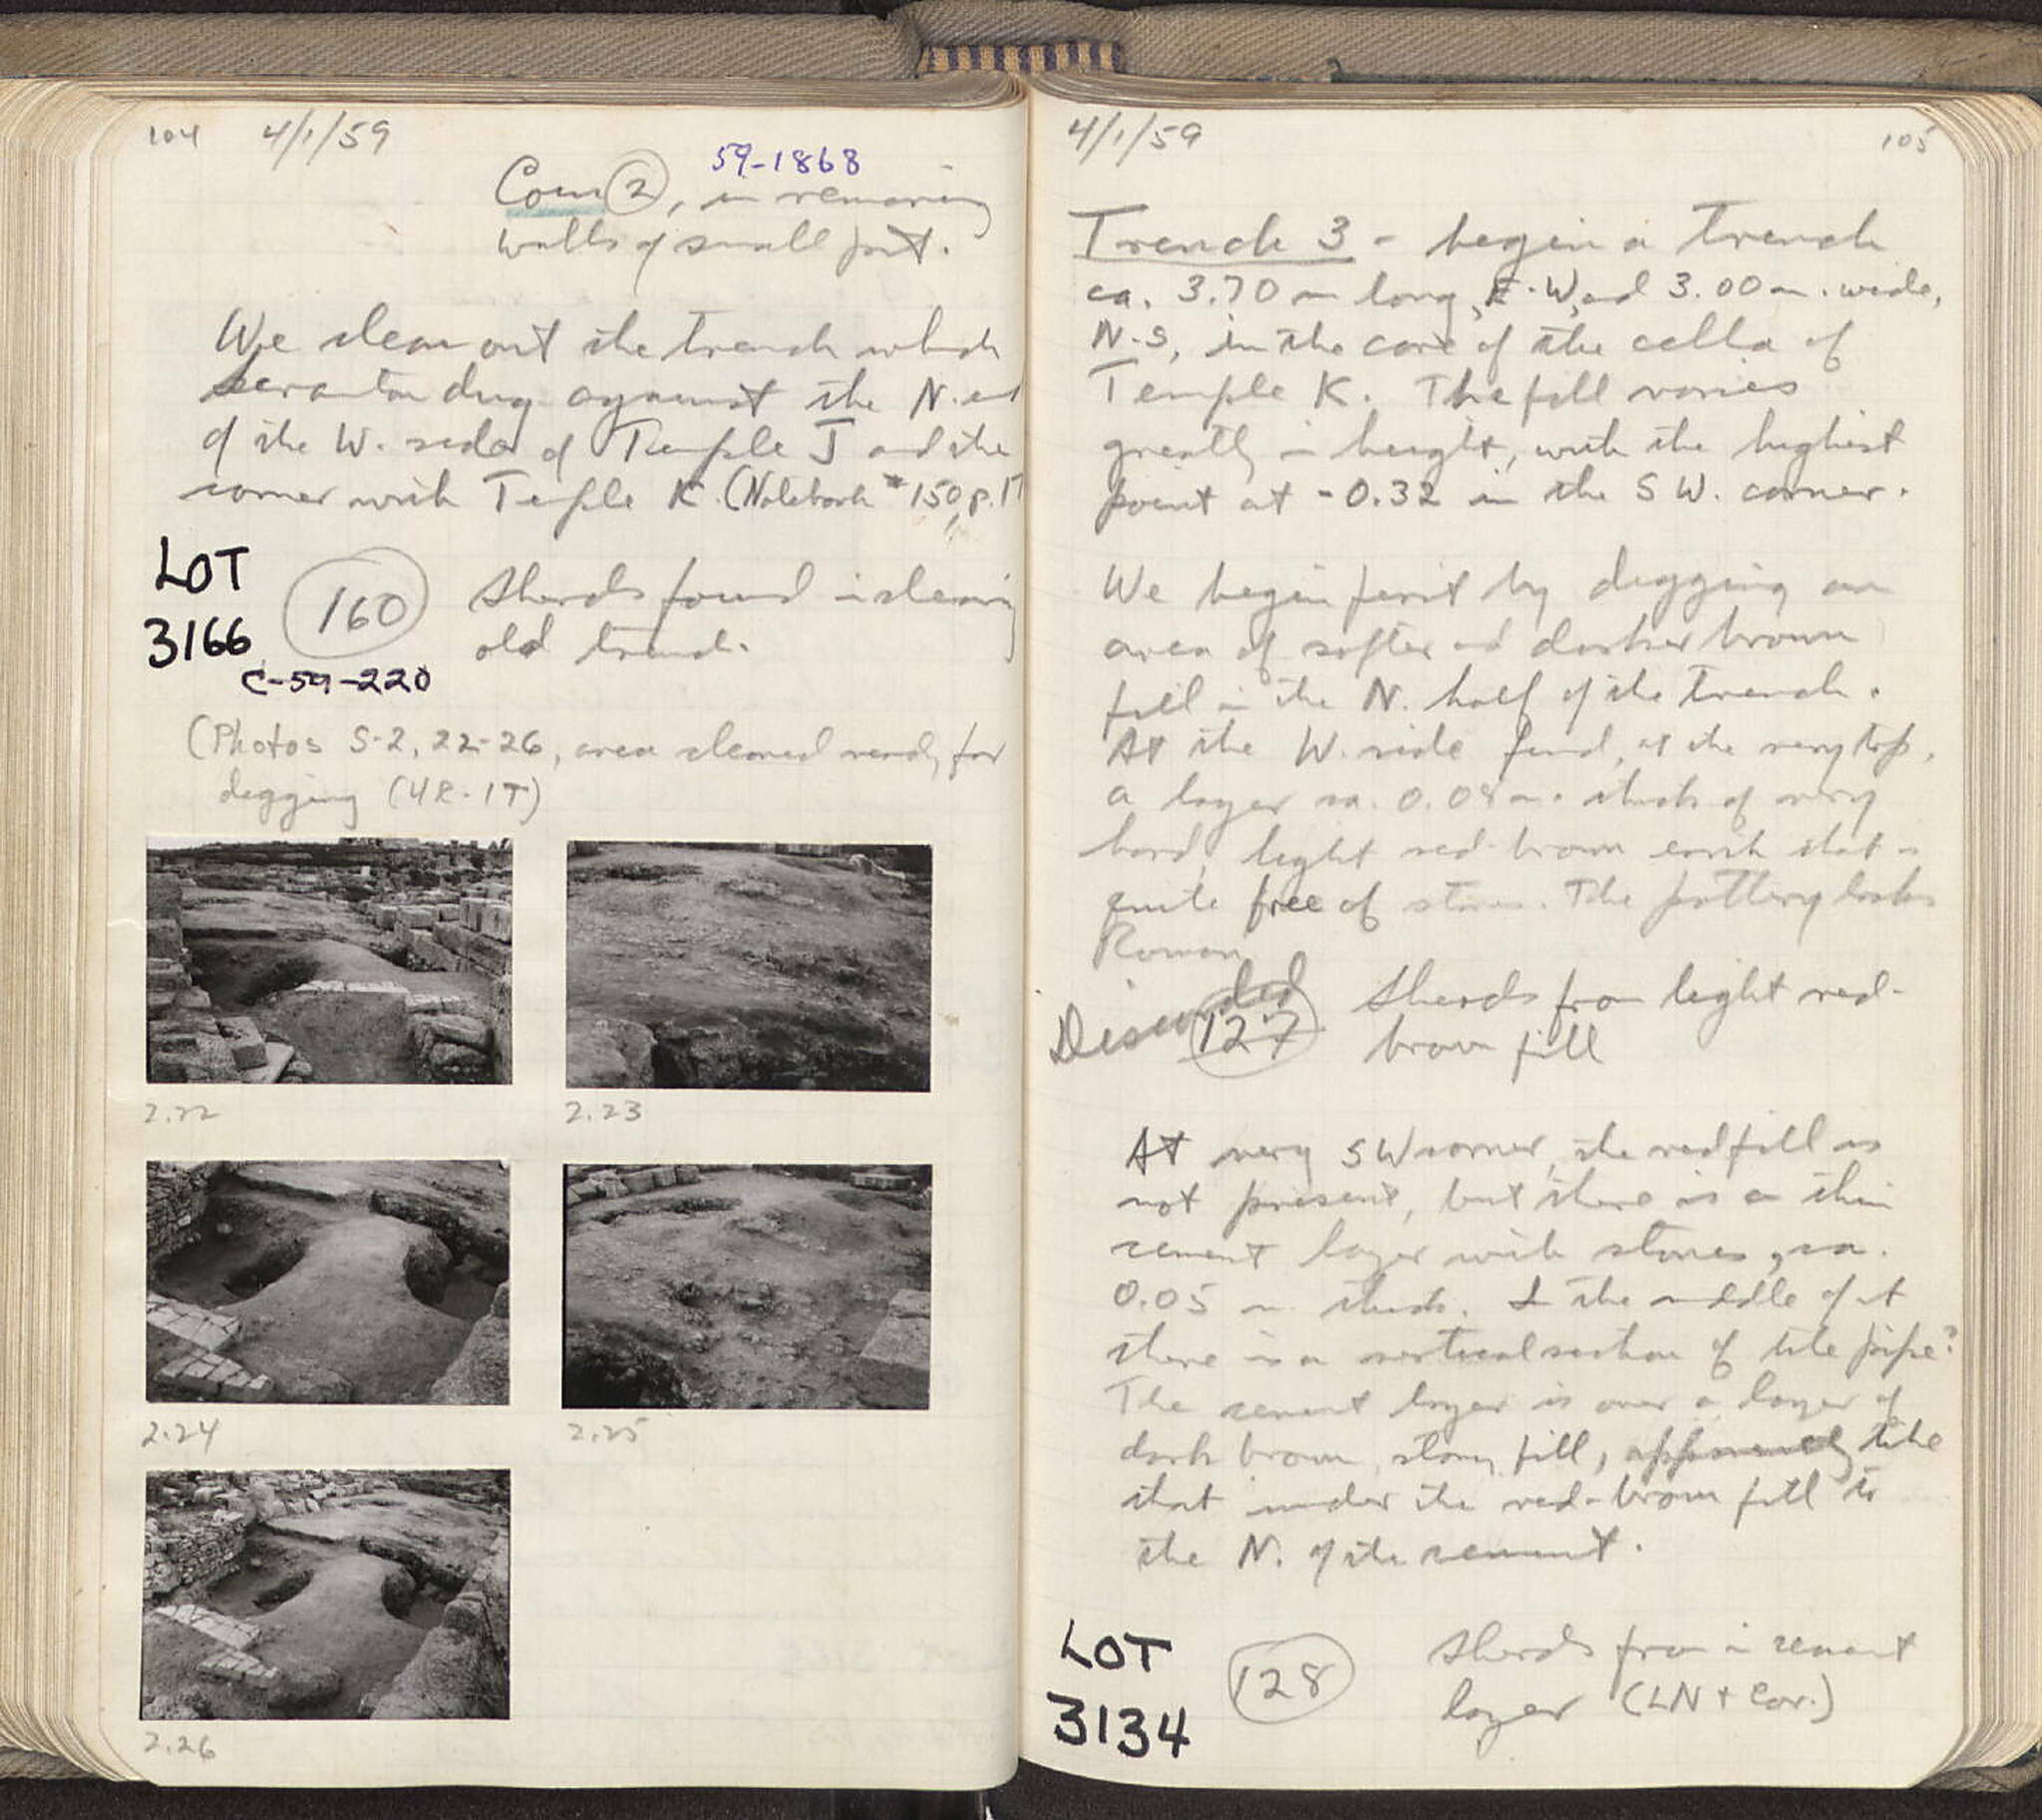 104 4/1/59
59-1868
Coin 2, in removing
walls of small pit.
We clean out the trench which
Scranton dug against the N. end
of the W. side of Temple J and the
corner with Temple K. (Notebook #150, p. 17
LOT
3166
160 Sherds found in cleaning
old trench.
C-59-220
(Photos S-2, 22-26, area cleaned ready for
digging (4R-1T)
2.22
2.23
2.24
2.25
2.26
4/1/59 105
Trench 3 - begin a trench
ca. 3.70 m long, E-W, and 3.00 m. wide,
N-S, in the core of the cella of
Temple K. The fill varies
greatly in height, with the highest
point at -0.32 in the SW. corner.
We begin first by digging an
area of softer and darker brown
fill in the N. half of the trench.
At the W. side find, at the very top,
a layer ca. 0.08 m. thick of very
hard, light red-brown earth that is
quite free of stones. The pottery looks
Roman
Discarded
127 Sherds from light red-
brown fill
At very SW corner, the red fill is
not present, but there is a thin
cement layer with stones, ca.
0.05 m thick. In the middle of it
there is a vertical section of tile pipe?
The cement layer is over a layer of
dark brown, stony fill, apparently like
that under the red-brown fill to
the N. of the cement.
LOT
3134
128 Sherds from in cement
layer (LN + Cor.)